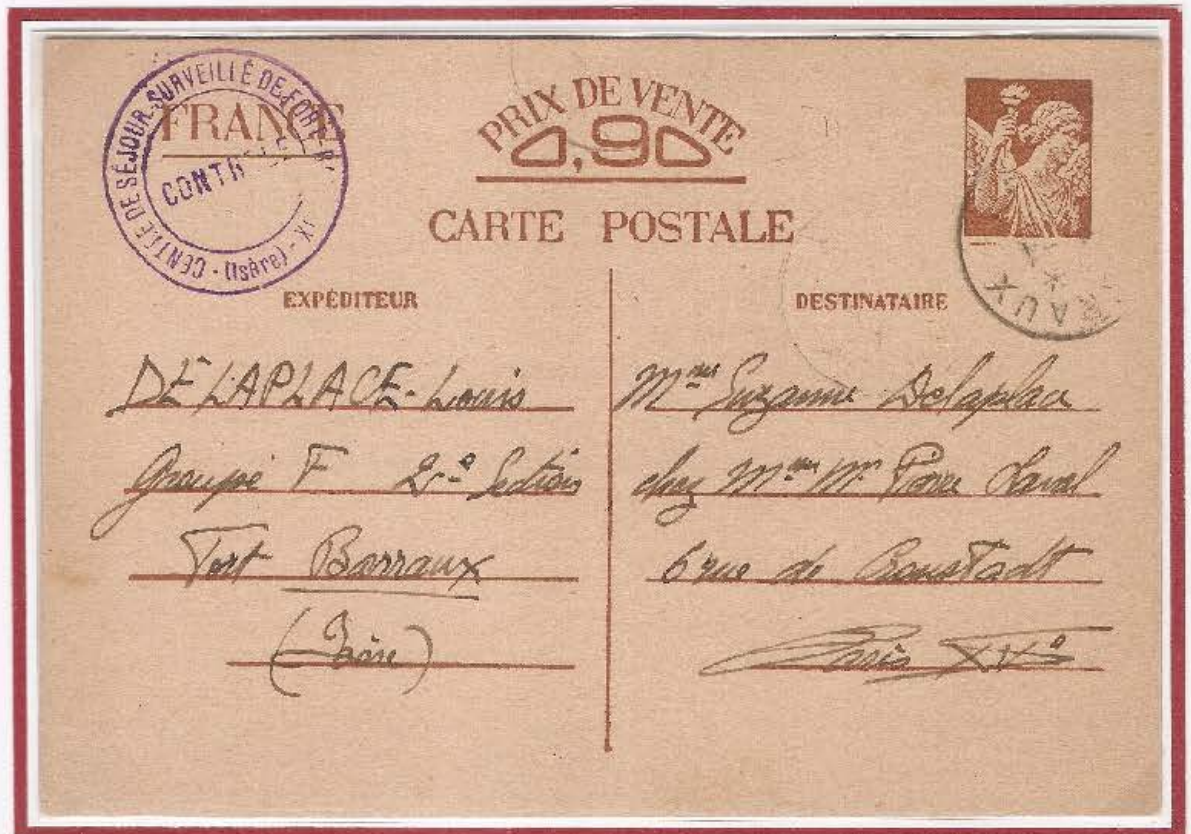 CENTRE DE SÉJOUR SURVEILLÉ DE FORT B
- (Isère) -
CONTR
FRANCE
PRIX DE VENTE
0,90
CARTE POSTALE
RAUX
EXPÉDITEUR
DELAPLACE - Louis
Groupe F 2e Section
Fort Barraux
(Isère)
DESTINATAIRE
Mme Suzanne Delaplace
chez Mme Mr Pierre Laval
6 rue de Cronstadt
Paris XVe